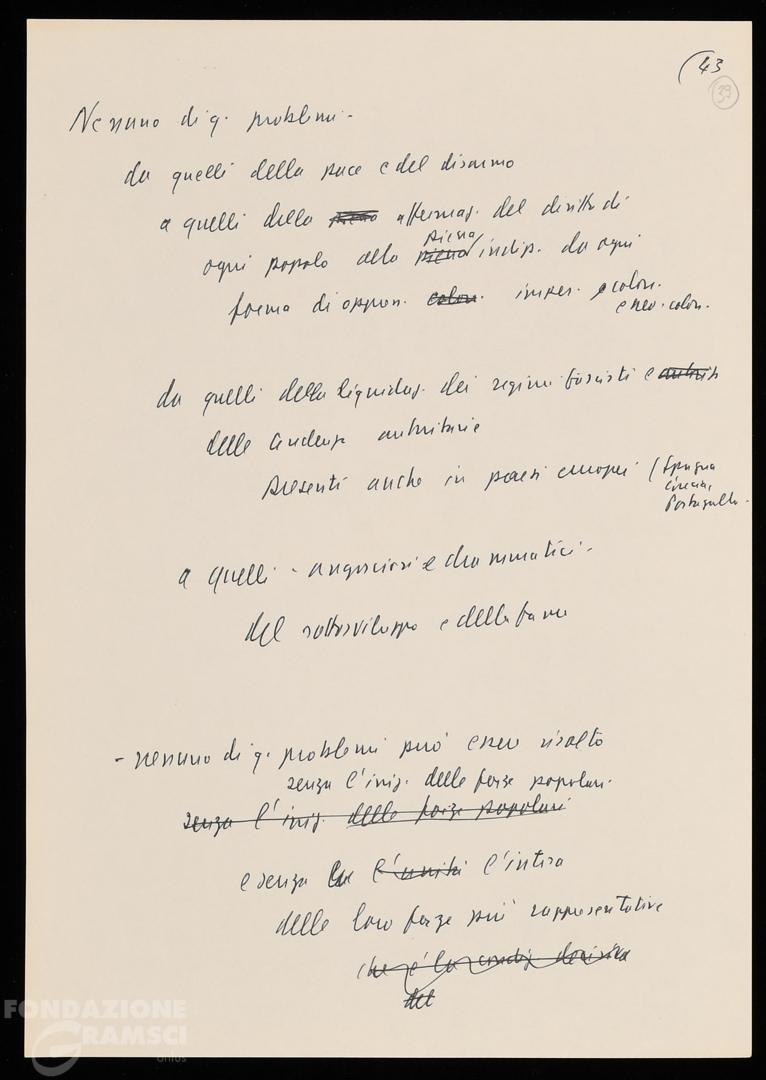 43
39
Nessuno di q. problemi -
da quelli della pace e del disarmo
a quelli della piena affermaz. del diritto di
ogni popolo alla piena piena indip. da ogni
forma di oppress. colon. imper. e colon.
e neo-colon.
da quelli della liquidaz. dei regimi fascisti e autorit
delle tendenze autoritarie
presenti anche in paesi europei (Spagna
Grecia,
Portogallo -
a quelli - angosciosi e drammatici -
del sottosviluppo e della fame
- nessuno di q. problemi può essere risolto
senza l'iniz. delle forze popolari.
senza l'iniz. delle forze popolari
e senza la l'unità l'intesa
delle loro forze più rappresentative
che è la condiz. decisiva
del
FONDAZIONE
GRAMSCI
onlus